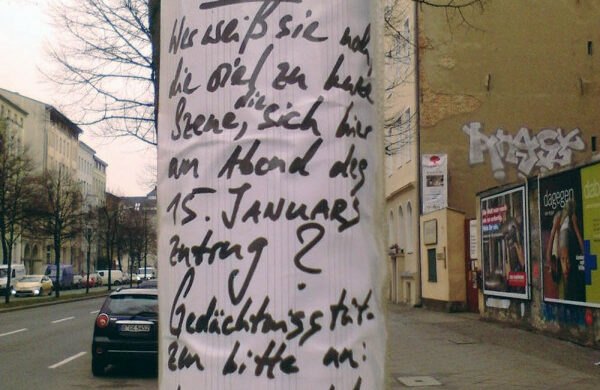 Wer weiß sie noch,
die viel zu kurze
Szene, die sich hier
am Abend des
15. JANUARS
zutrug?
Gedächtnisstüt-
zen bitte an:
dagegen